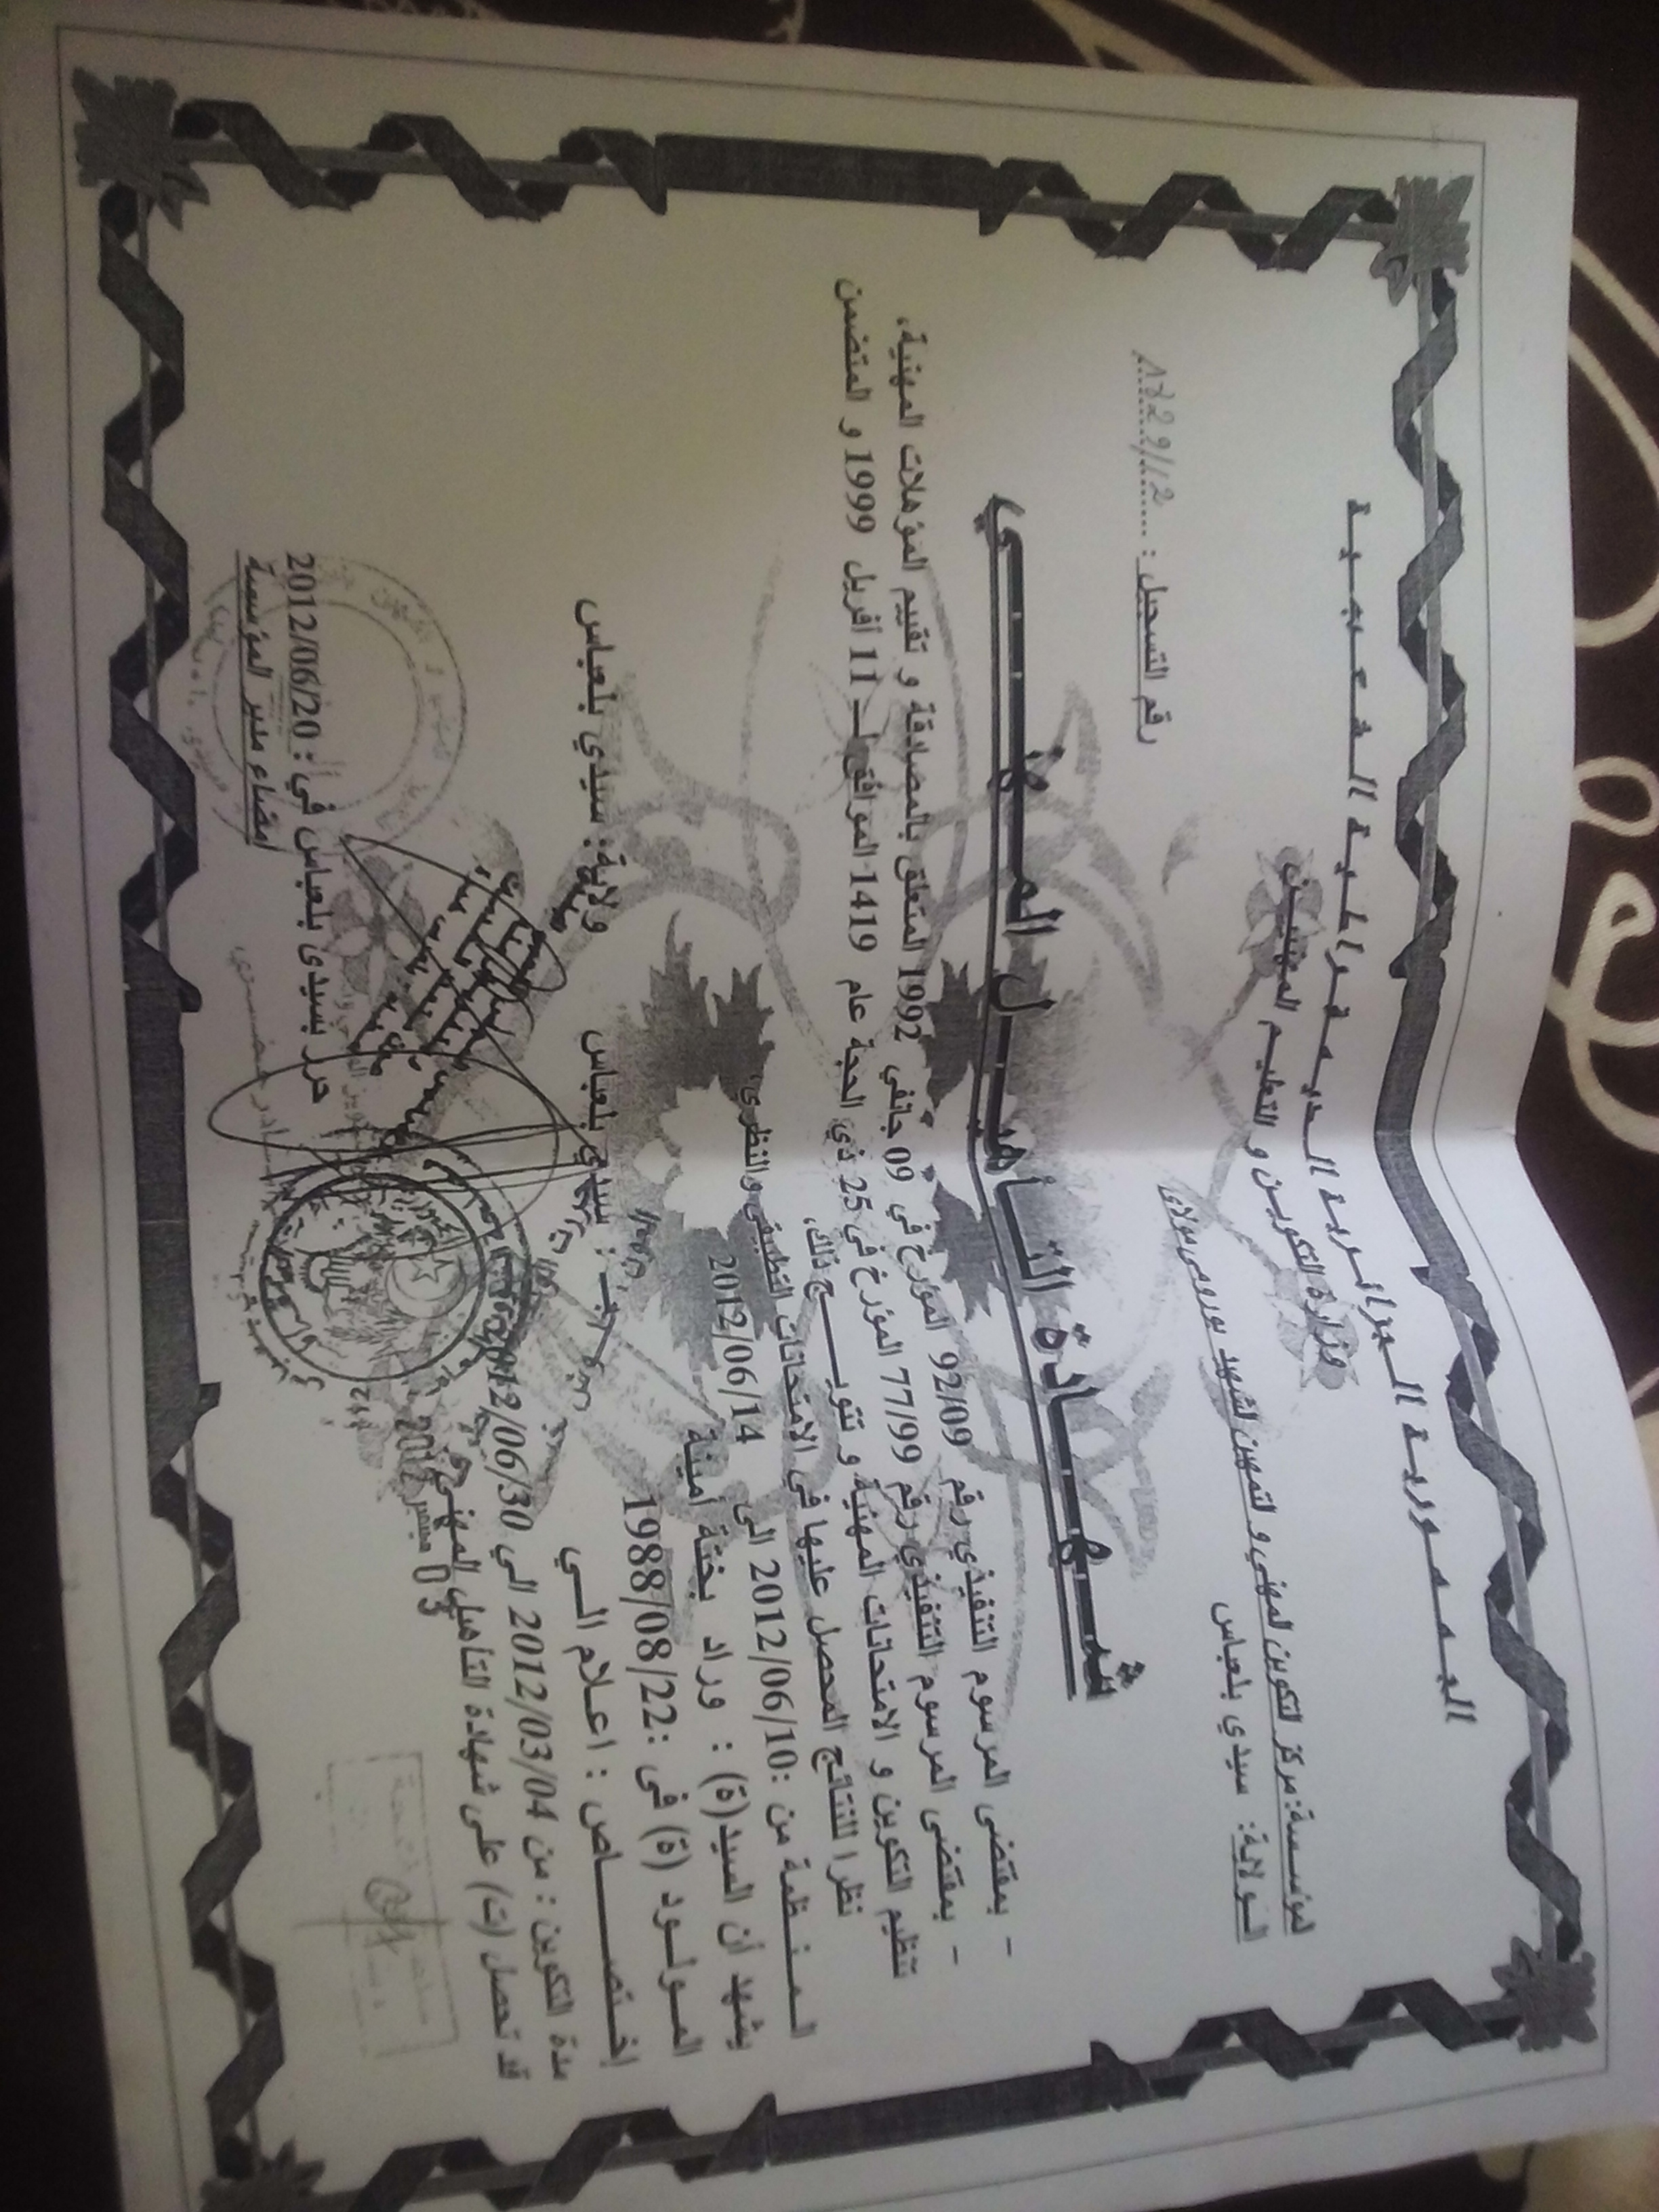 الجمهورية الجزائرية الديمقراطية الشعبية
وزارة التكوين و التعليم المهنيين
المؤسسة: مركز التكوين المهني و التمهين الشهيد بورومي مولاي
الولاية: سيدي بلعباس
رقم التسجيل :
شهادة التأهيل المهني
- بمقتضى المرسوم التنفيذي رقم 92/09 المؤرخ في 09 جانفي 1992 المتعلق بالمصادقة و تقييم المؤهلات المهنية،
- بمقتضى المرسوم التنفيذي رقم 77/99 المؤرخ في 25 ذي الحجة عام 1419 الموافق لـ 11 أفريل 1999 و المتضمن
تنظيم التكوين و الامتحانات المهنية و تتويج ذلك،
نظرا للنتائج المحصل عليها في الامتحانات التطبيقي والنظري،
المنظمة من :2012/06/10 الى 2012/06/14
يشهد أن السيد(ة) : وراد بختة أمينة
المولود (ة) في :1988/08/22 بـ : سيدي بلعباس ولاية: سيدي بلعباس
إختصاص : اعلام الي
مدة التكوين : من 2012/03/04 الى 2012/06/30
قد تحصل (ت) على شهادة التأهيل المهني
حرر بسيدي بلعباس في : 2012/06/20
إمضاء مدير المؤسسة
03 ديسمبر 2012